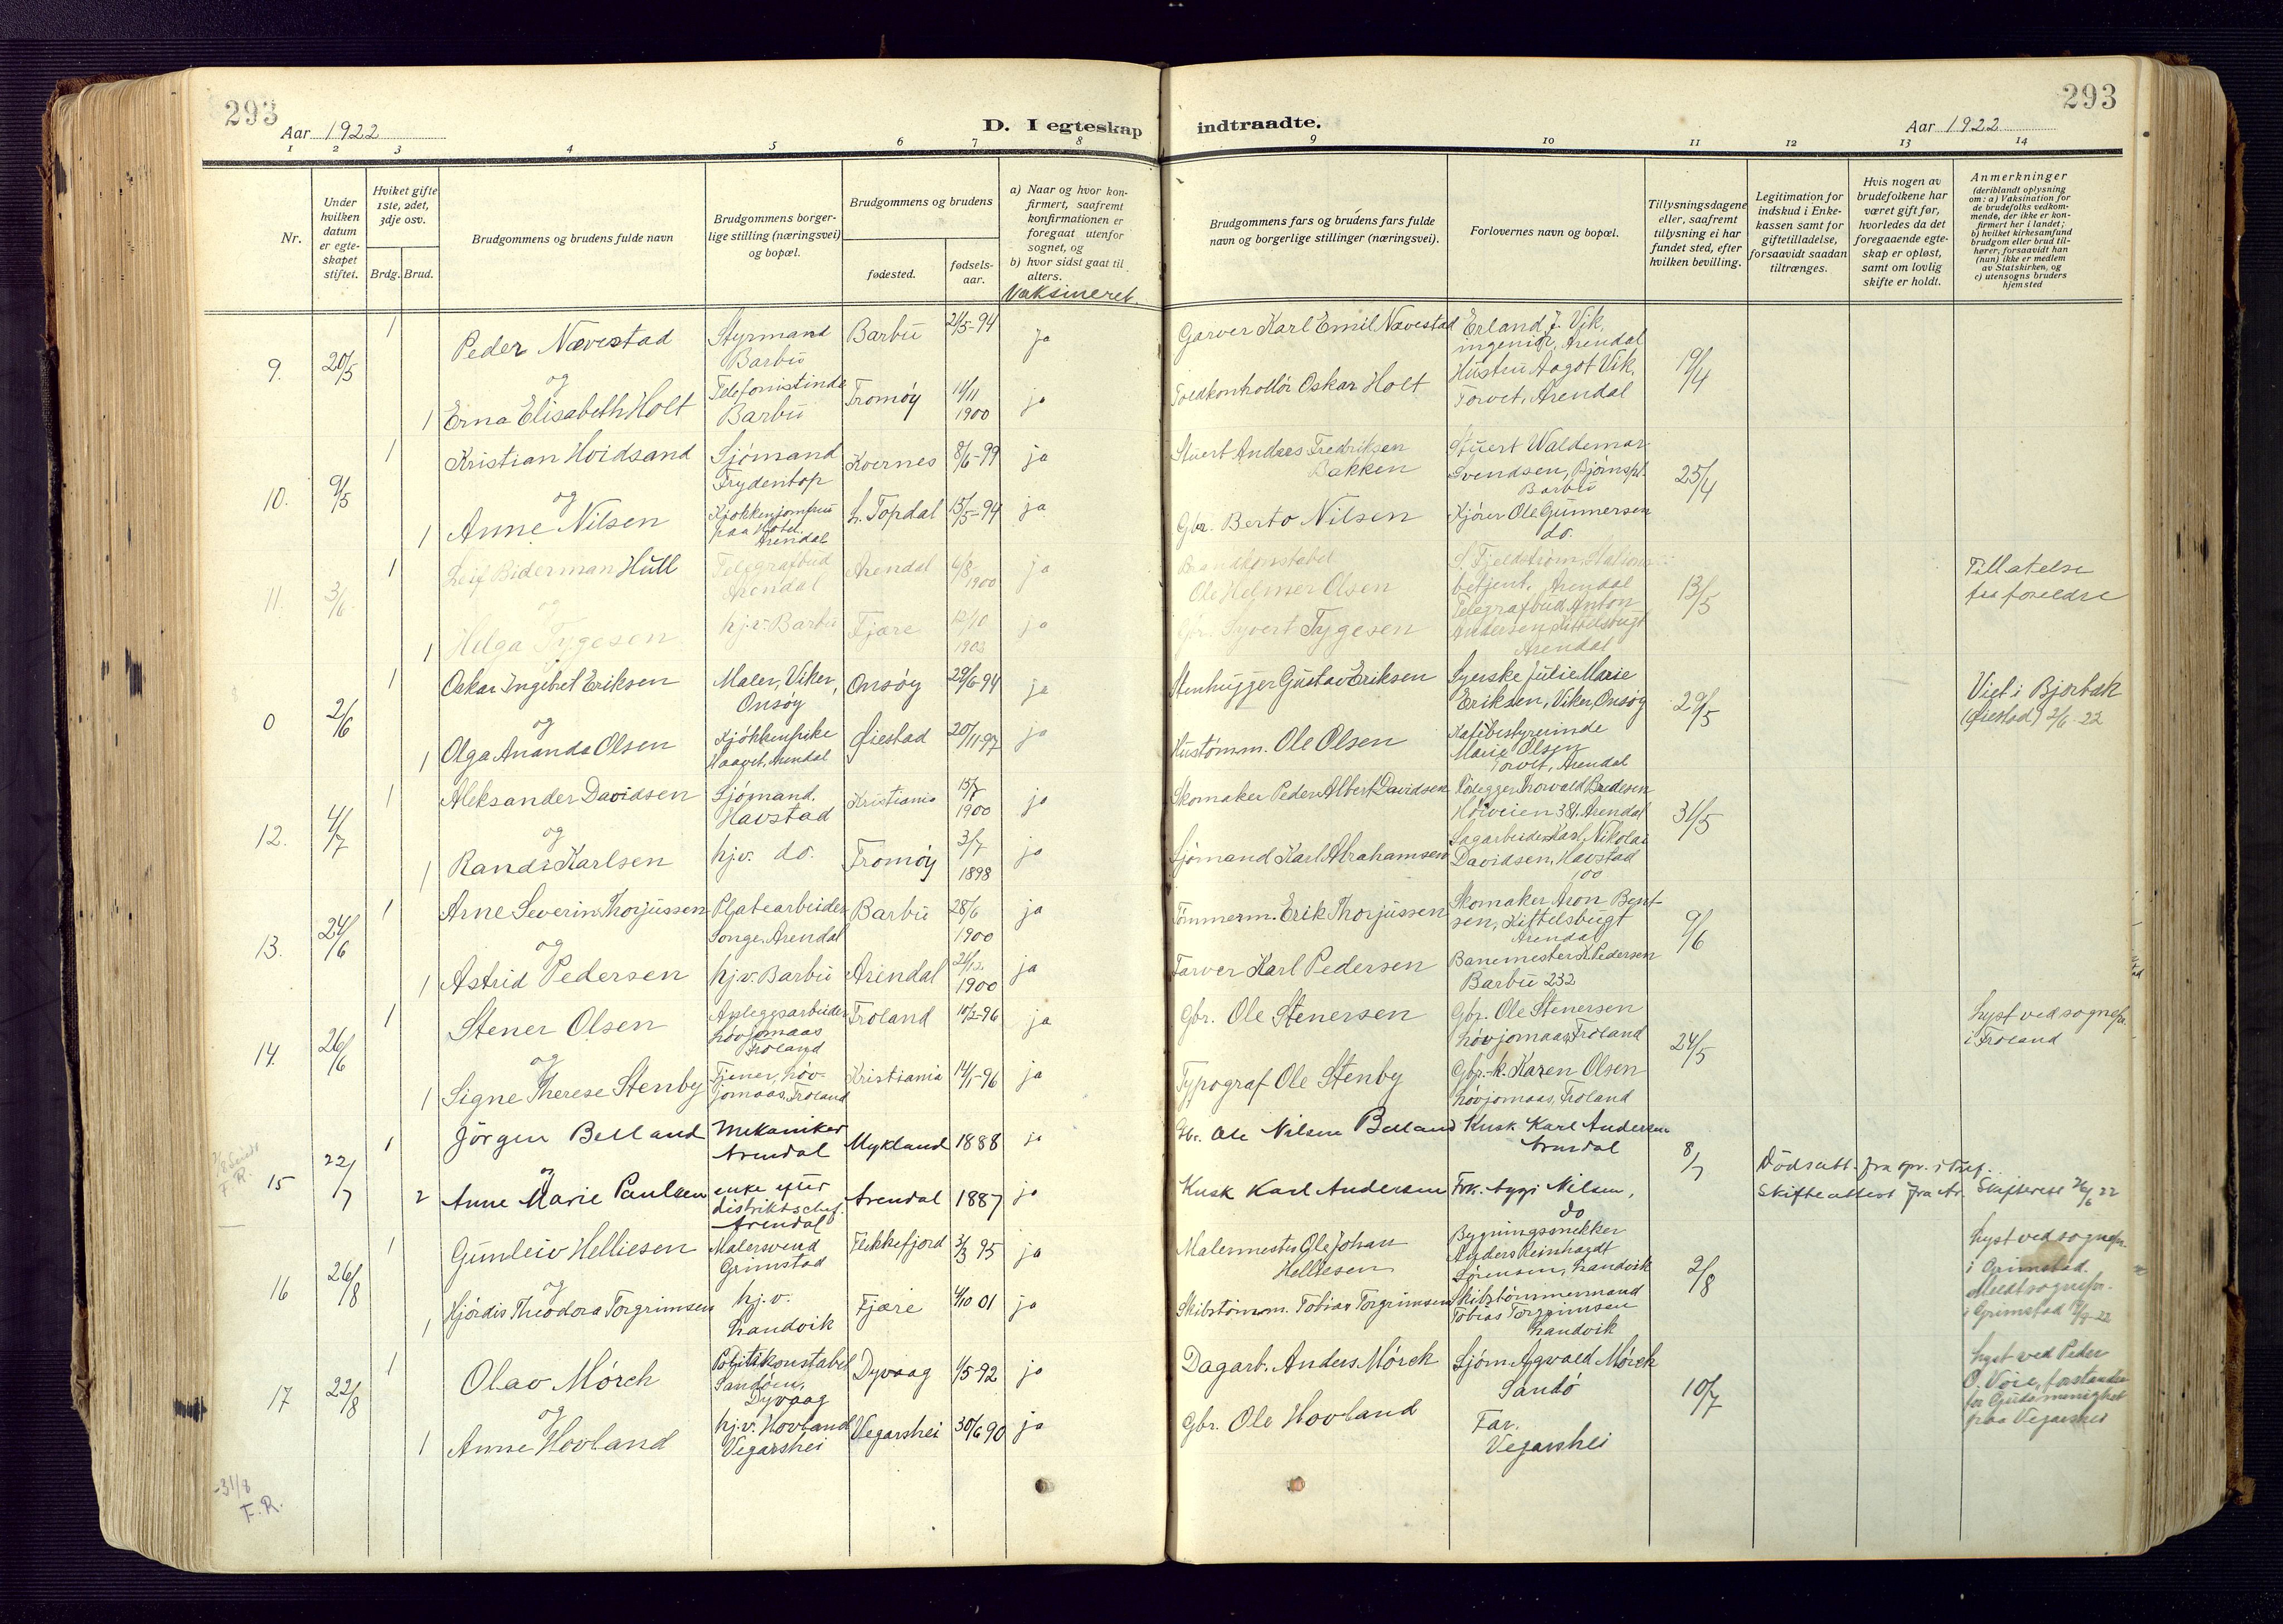 293
Aar 1922
D. I egteskap
indtraadte.
Aar 1922
293
1 2 3 4 5 6 7 8 9 10 11 12 13 14
Nr.
Under hvilken datum er egteskapet stiftet.
Hviket gifte 1ste, 2det, 3dje osv.
Brdg. Brud.
Brudgommens og brudens fulde navn
Brudgommens borgerlige stilling (næringsvei) og bopæl.
Brudgommens og brudens
fødested.
fødselsaar.
a) Naar og hvor konfirmert, saafremt konfirmationen er foregaat utenfor sognet, og
b) hvor sidst gaat til alters.
Vaksineret.
Brudgommens fars og brudens fars fulde navn og borgerlige stillinger (næringsvei).
Forlovernes navn og bopæl.
Tillysningsdagene eller, saafremt tillysning ei har fundet sted, efter hvilken bevilling.
Legitimation for indskud i Enkekassen samt for giftetilladelse, forsaavidt saadan tiltrænges.
Hvis nogen av brudefolkene har været gift før, hvorledes da det foregaaende egteskap er opløst, samt om lovlig skifte er holdt.
Anmerkninger
(deriblandt oplysning om: a) Vaksination for de brudefolks vedkommende, der ikke er konfirmert her i landet;
b) hvilket kirkesamfund brudgom eller brud tilhører, forsaavidt han (hun) ikke er medlem av Statskirken, og
c) utensogns bruders hjemsted
9. 20/5 1 Peder Nævestad Styrmand Barbu Barbu 21/5-94 ja Garver Karl Emil Nævestad Erland J. Vik, ingeniör, Arendal 19/4
og
1 Erna Elisabeth Holt Telefonistinde Barbu Tromöy 14/11 1900 ja Toldkontrollör Oskar Holt Hustru Aagot Vik, Torvet, Arendal
10. 9/5 1 Kristian Hoidsand Sjömand Frydentop Kvernes 8/6-99 ja Stuert Anders Fredriksen Bakken Stuert Waldemar Svendsen, Björnspl. Barbu 25/4
og
1 Anne Nilsen Kjökkenjomfru paa Hotel Arendal h. Topdal 15/5-94 ja Gbr. Berto Nilsen Kjörer Ole Gunnersen do.
11. 3/6 1 Leif Biderman Hull Telegrafbud Arendal Arendal 6/8 1900 ja Brandkonstabel Ole Helmer Olsen S. Fjeldström, Stationsbetjent, Arendal 13/5 Tillatelse fra foreldre
og
1 Helga Tygesen hj.v. Barbu Fjære 12/10 1903 ja Gbr. Syvert Tygesen Telegrafbud Anton Andersen, Kittelsbugt Arendal
0 2/6 1 Oskar Ingebret Eriksen Maler, Viker, Onsöy Onsöy 29/6-94 ja Stenhugger Gustav Eriksen Syerske Julie Marie Eriksen, Viker, Onsöy 29/5 Viet i Bjorbæk (Øiestad) 2/6 22
og
1 Olga Ananda Olsen Kjökkenpike Haavet, Arendal Øiestad 20/11-97 ja Hustömm. Ole Olsen Kafébestyrerinde Marie Olsen Torvet, Arendal
12. 4/7 1 Aleksander Davidsen Sjömand. Havstad Kristiania 15/7 1900 ja Skomaker Peder Albert Davidsen Rölegger Thorvald Bredesen Höiveien 381, Arendal 31/5
og
1 Randi Karlsen hj.v. do. Tromöy 3/7 1898 ja Sjömand Karl Abrahamsen Sagarbeider Karl Nikolai Davidsen, Havstad 100
13. 24/6 1 Arne Severin Thorjussen Platearbeider Songe, Arendal Barbu 28/6 1900 ja Tömmerm. Erik Thorjussen Skomaker Aron Bentsen, Kittelsbugt Arendal 9/6
og
1 Astrid Pedersen hj.v. Barbu Arendal 21/12 1900 ja Farver Karl Pedersen Banemester K. Pedersen Barbu 232
14. 26/6 1 Stener Olsen Anleggsarbeider Lövjomaas Froland Froland 10/2-96 ja Gbr. Ole Stenersen Gbr. Ole Stenersen Lövjomaas, Froland 24/5 Lyst ved sognepr. i Froland
og
1 Signe Therese Stenby Tjener, Lövjomaas, Froland Kristiania 14/1-96 ja Typograf Ole Stenby Gbr.-k. Karen Olsen Lövjomaas, Froland
F.R.
15 22/7 1 Jörgen Belland Mekaniker Arendal Mykland 1888 ja Gbr. Ole Nilsen Belland Kusk Karl Andersen Arendal 8/7 Dödsatt. fra spr. i Tref.
og
2 Anne Marie Paulsen enke efter distriktschef. Arendal Arendal 1887 ja Kusk Karl Andersen Frk. Aggi Nilsen, do Skifteattest fra Ar. Skifteret 26/6 22
16 26/8 1 Gunleiv Helliesen Malersvend Grimstad Flekkefjord 3/3 95 ja Malermester Ole Johan Helliesen Bygningssnekker Anders Reinhardt Sörensen, Landvik 2/8 Lyst ved sognepr. i Grimstad. Meldt sognepr. i Grimstad
og
1 Hjördis Theodora Torgrimsen hj.v. Landvik Fjære 4/10 01 ja Skibstömm. Tobias Torgrimsen Skibstömmermand Tobias Torgrimsen Landvik
17 22/8 1 Olav Mörch Politikonstabel Sandöen, Dyvaag Dyvaag 1/5-92 ja Dagarb. Anders Mörch Sjöm. Agvald Mörch Sandö 10/7 Lyst ved Peder O. Voie, forstander for Guds menighet paa Vegarshei
og
1 Anne Hovland hj.v. Hovland Vegarshei Vegarshei 30/6 90 ja Gbr. Ole Hovland Far. Vegarshei
-31/8
F.R.